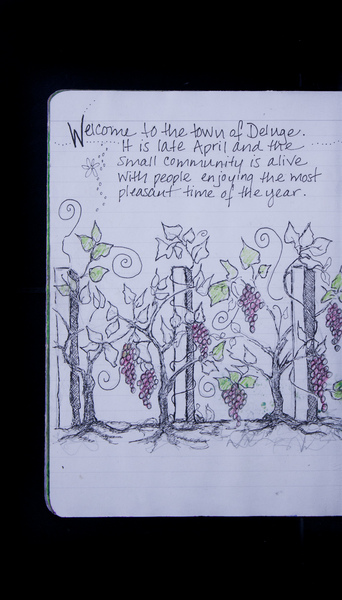 Welcome to the town of Deluge.
It is late April and the
small community is alive
with people enjoying the most
pleasant time of the year.